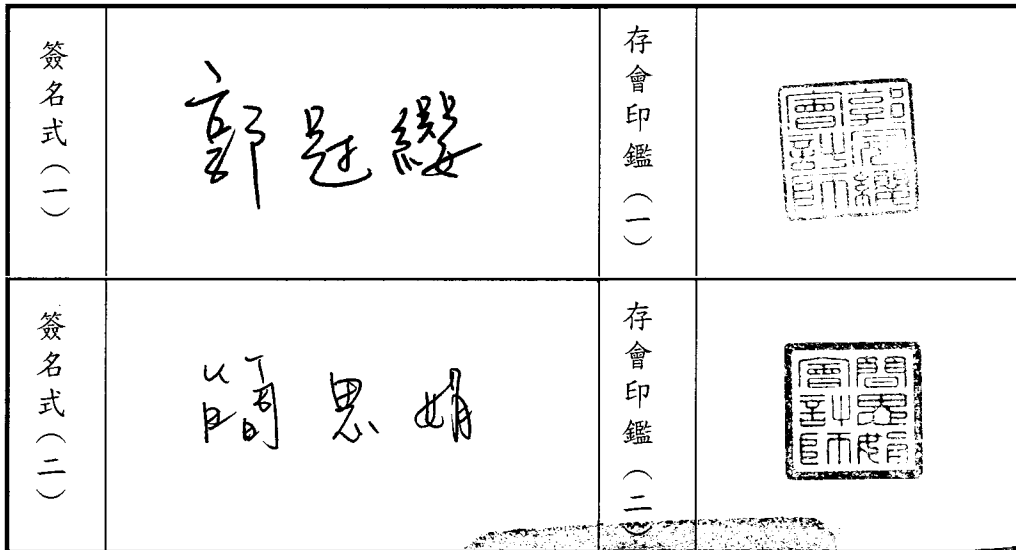 簽名式(一)
郭冠纓
存會印鑑(一)
郭冠纓會計師
簽名式(二)
簡思娟
存會印鑑(二)
簡思娟會計師